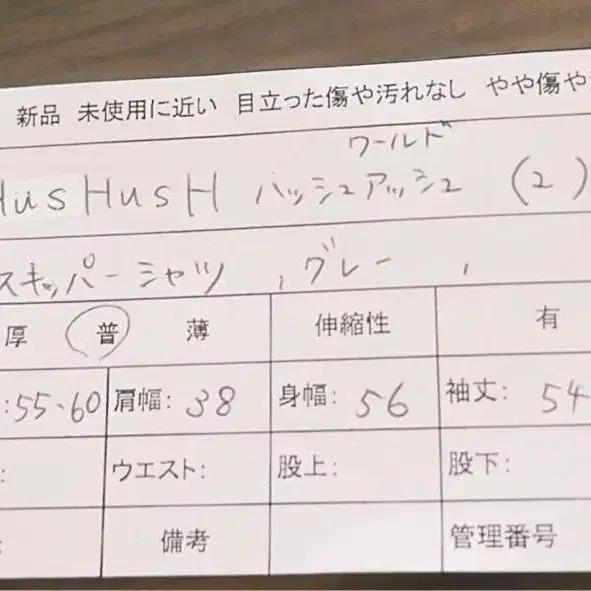 新品 未使用に近い 目立った傷や汚れなし やや傷や
ワールド
HusHusH ハッシュアッシュ (2)
スキッパーシャツ , グレー ,
厚 普 薄 伸縮性 有
:55-60 肩幅: 38 身幅: 56 袖丈: 54
: ウエスト: 股上: 股下:
: 備考 管理番号